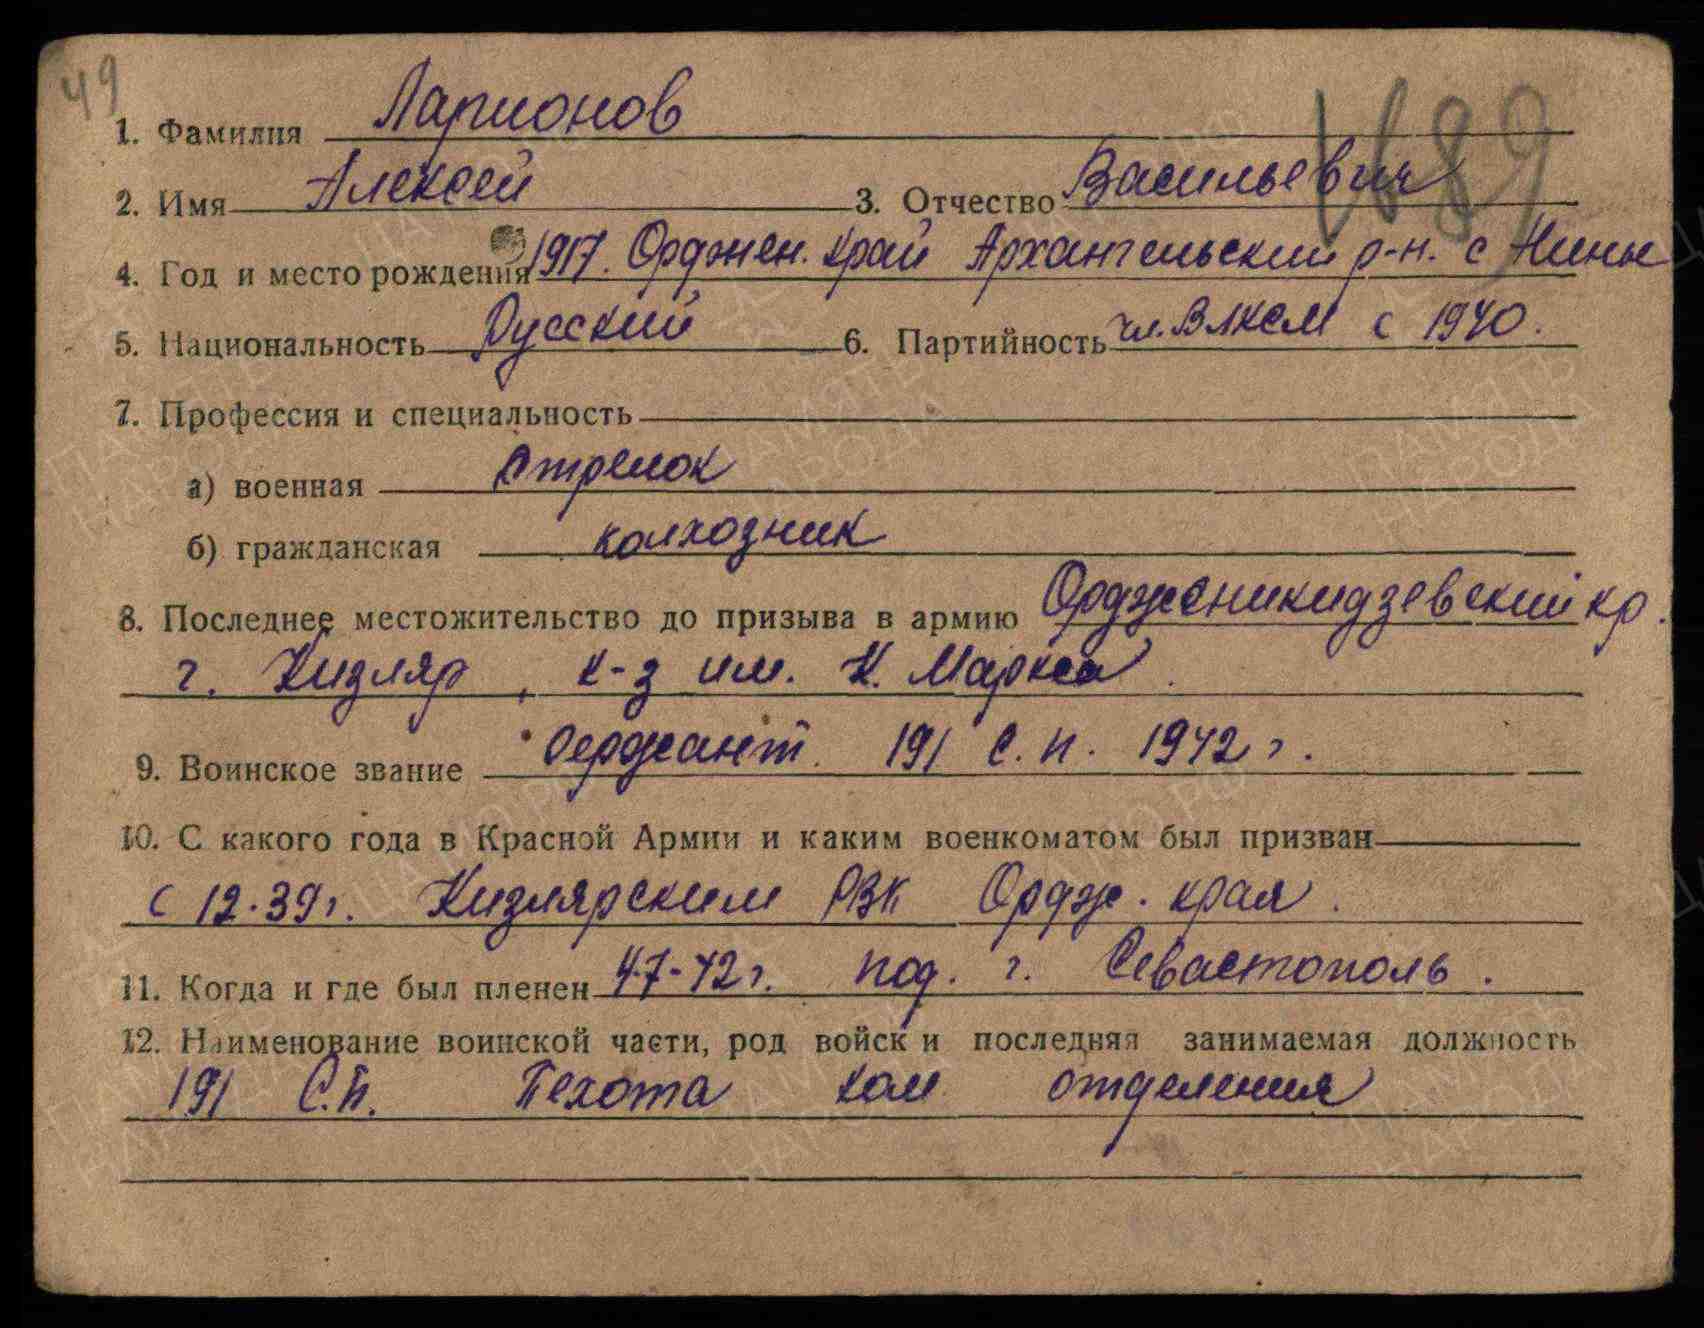 49
1. Фамилия Ларионов
1689
2. Имя Алексей 3. Отчество Васильевич
4. Год и место рождения 1917. Орджен. край Архангельский р-н. с Нины
5. Национальность Русский 6. Партийность чл. ВЛКСМ с 1940.
7. Профессия и специальность
а) военная стрелок
б) гражданская колхозник
8. Последнее местожительство до призыва в армию Орджсникидзевский кр.
г. Кизляр, к-з им. К. Маркса.
9. Воинское звание сержант. 191 С. п. 1942 г.
10. С какого года в Красной Армии и каким военкоматом был призван
с 12.39 г. Кизлярским РВК Ордж. края.
11. Когда и где был пленен 4.7-42 г. под. г. Севастополь.
12. Наименование воинской части, род войск и последняя занимаемая должность
191 С.П. Пехота ком отделения